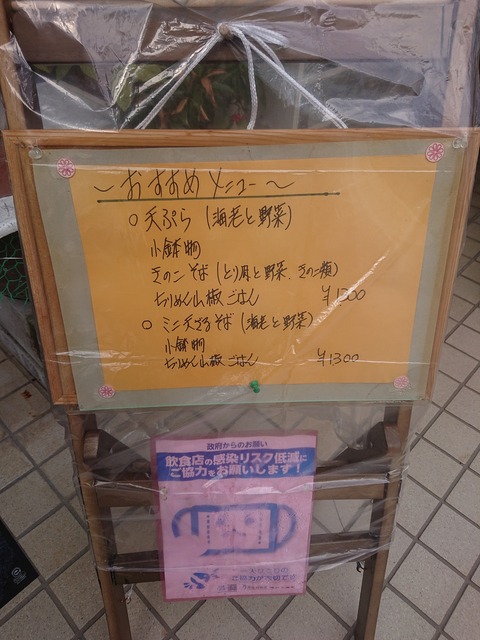 ～おすすめメニュー～
○天ぷら(海老と野菜)
小鉢物
きのこそば(とり肉と野菜、きのこ類)
ちりめん山椒ごはん ¥1300
○ミニ天ざるそば(海老と野菜)
小鉢物
ちりめん山椒ごはん ¥1300
政府からのお願い
飲食店の感染リスク低減に
ご協力をお願いします!